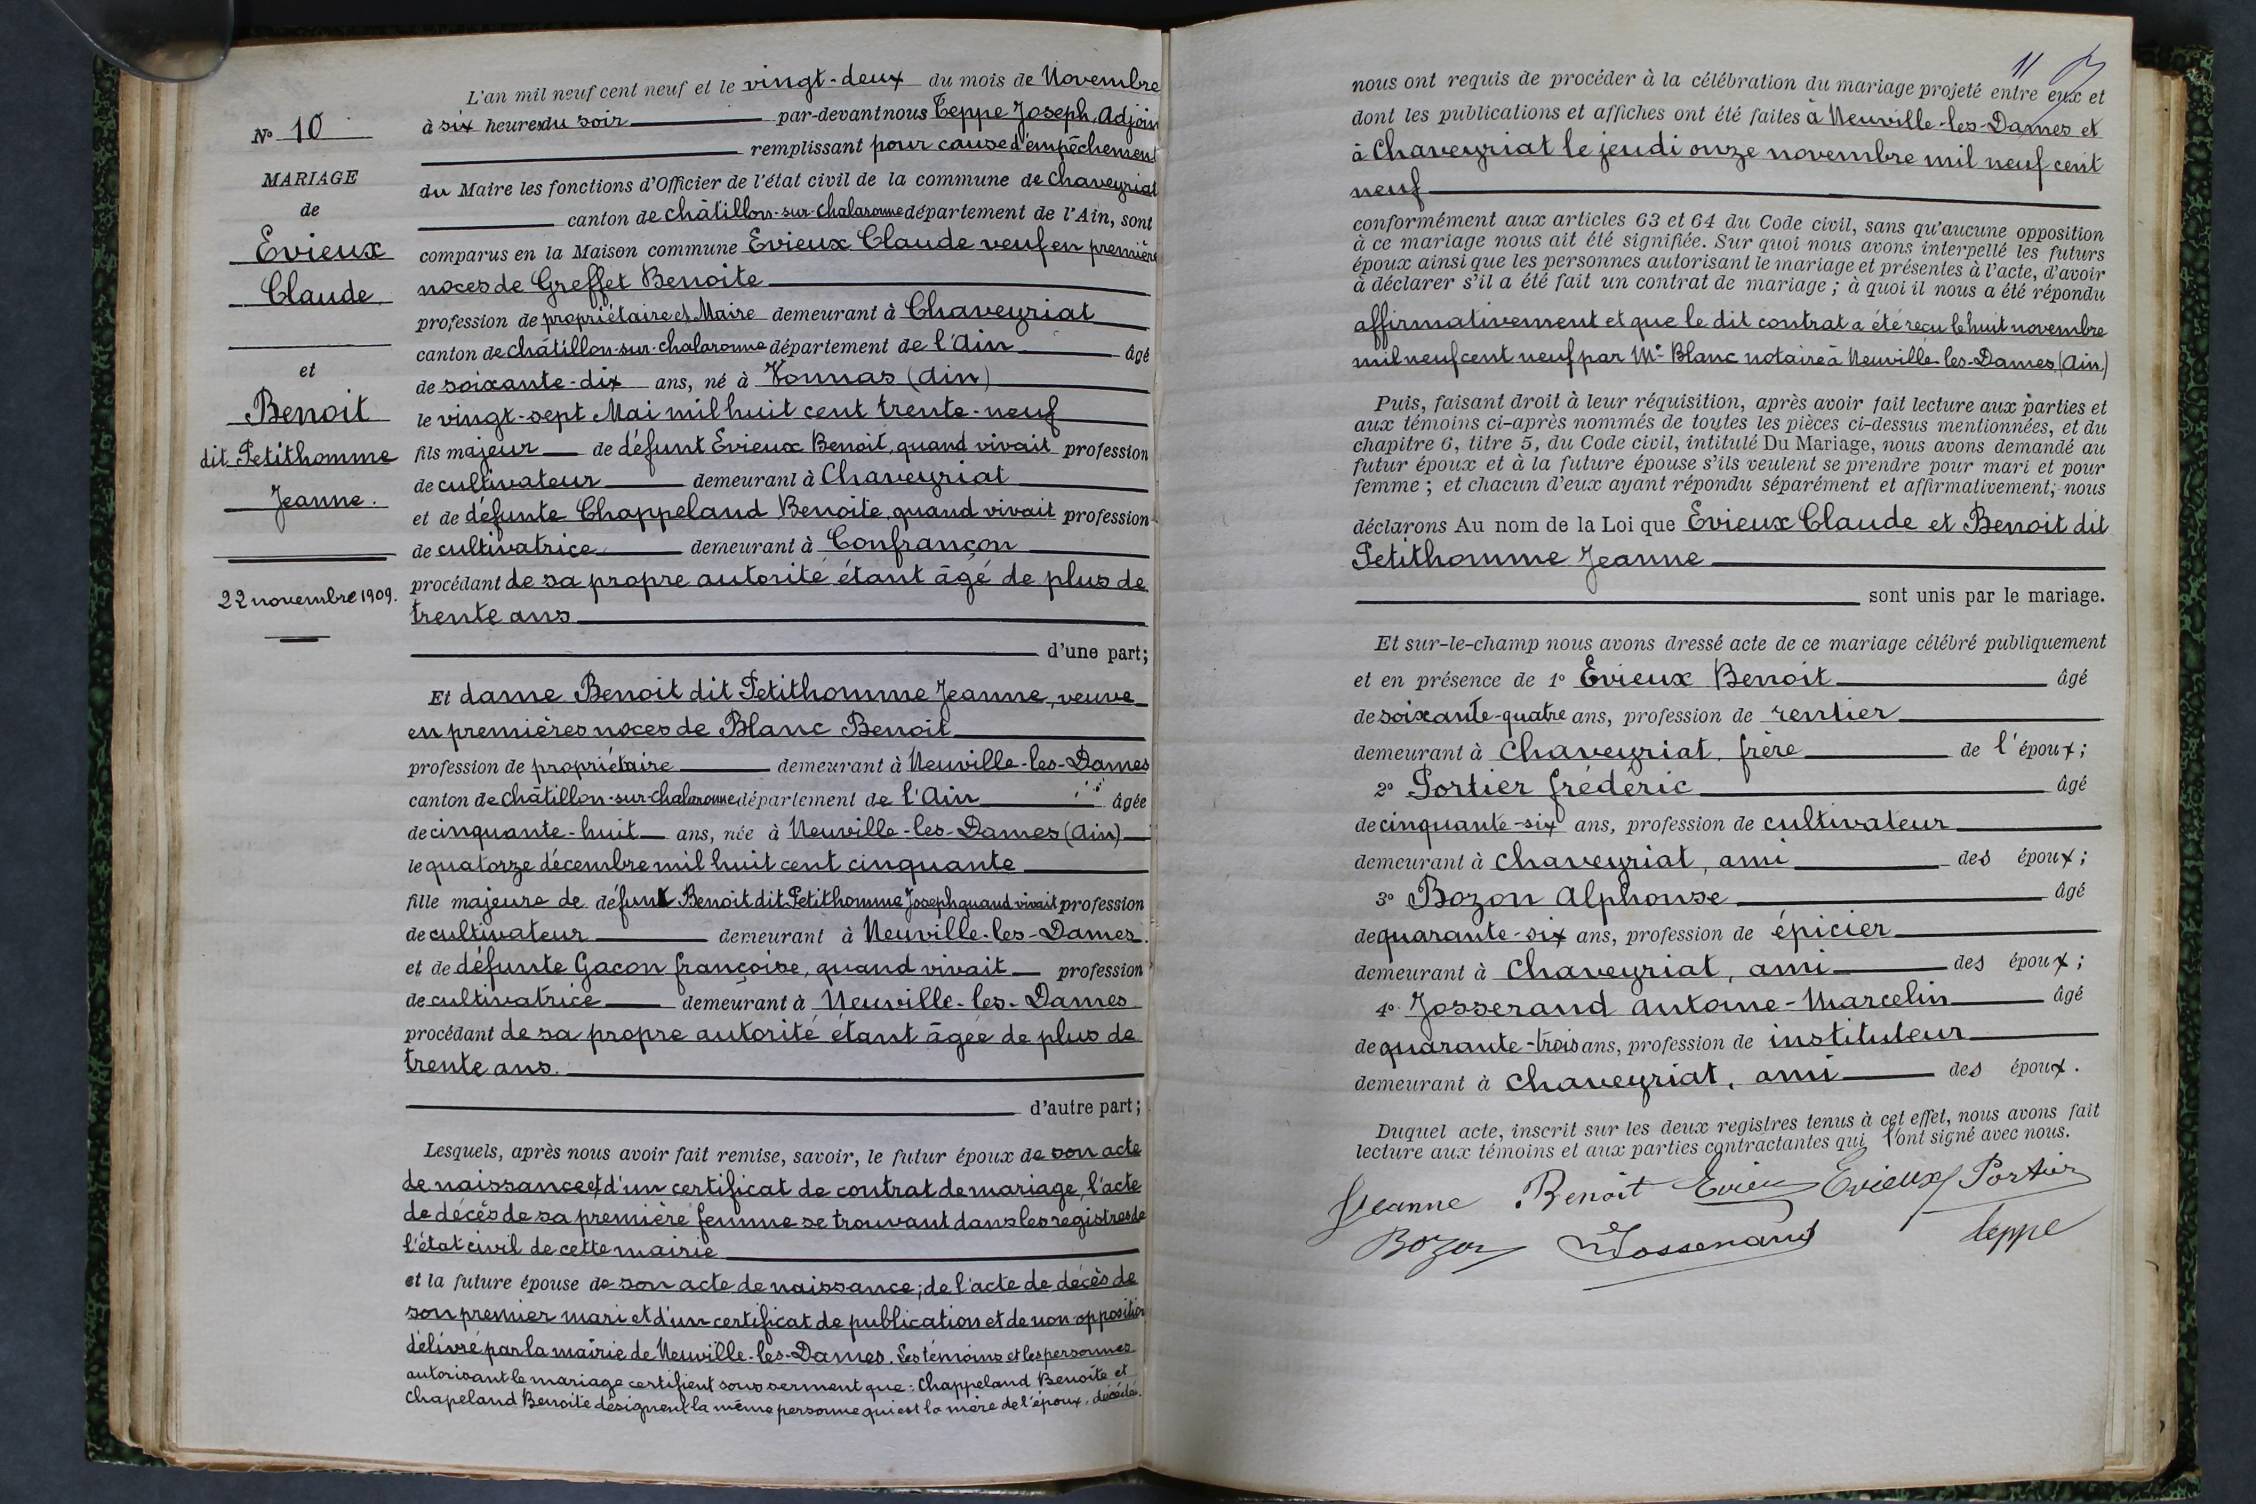 N° 10
MARIAGE
de
Evieux
Claude
et
Benoit
dit Petithomme
Jeanne.
22 novembre 1909.
L'an mil neuf cent neuf et le vingt-deux du mois de Novembre
à six heures du soir par-devant nous Teppe Joseph, Adjoin
remplissant pour cause d'empêchement
du Maire les fonctions d'Officier de l'état civil de la commune de Chaveyriat
canton de châtillon-sur-chalaronne département de l'Ain, sont
comparus en la Maison commune Evieux Claude veuf en première
noces de Greffet Benoite
profession de propriétaire et Maire demeurant à Chaveyriat
canton de châtillon-sur-chalaronne département de l'Ain âgé
de soixante-dix ans, né à Vonnas (Ain)
le vingt-sept Mai mil huit cent trente-neuf
fils majeur de défunt Evieux Benoit, quand vivait profession
de cultivateur demeurant à Chaveyriat
et de défunte Chappeland Benoite, quand vivait profession
de cultivatrice demeurant à Confrançon
procédant de sa propre autorité étant âgé de plus de
trente ans
d'une part;
Et dame Benoit dit Petithomme Jeanne, veuve
en premières noces de Blanc Benoit
profession de propriétaire demeurant à Neuville-les-Dames
canton de châtillon-sur-chalaronne département de l'Ain âgée
de cinquante-huit ans, née à Neuville-les-Dames (Ain)
le quatorze décembre mil huit cent cinquante
fille majeure de défunt Benoit dit Petithomme Joseph quand vivait profession
de cultivateur demeurant à Neuville-les-Dames.
et de défunte Gacon françoise, quand vivait profession
de cultivatrice demeurant à Neuville-les-Dames
procédant de sa propre autorité étant âgée de plus de
trente ans.
d'autre part;
Lesquels, après nous avoir fait remise, savoir, le futur époux de son acte
de naissance et d'un certificat de contrat de mariage, l'acte
de décès de sa première femme se trouvant dans les registres de
l'état civil de cette mairie
et la future épouse de son acte de naissance; de l'acte de décès de
son premier mari et d'un certificat de publication et de non opposition
délivré par la mairie de Neuville-les-Dames. Les témoins et les personnes
autorisant le mariage certifient sous serment que: Chappeland Benoite et
Chapeland Benoite désignent la même personne qui est la mère de l'époux, décédé.
11
nous ont requis de procéder à la célébration du mariage projeté entre eux et
dont les publications et affiches ont été faites à Neuville-les-Dames et
à Chaveyriat le jeudi onze novembre mil neuf cent
neuf
conformément aux articles 63 et 64 du Code civil, sans qu'aucune opposition
à ce mariage nous ait été signifiée. Sur quoi nous avons interpellé les futurs
époux ainsi que les personnes autorisant le mariage et présentes à l'acte, d'avoir
à déclarer s'il a été fait un contrat de mariage; à quoi il nous a été répondu
affirmativement et que le dit contrat a été reçu le huit novembre
mil neuf cent neuf par Me Blanc notaire à Neuville-les-Dames (Ain)
Puis, faisant droit à leur réquisition, après avoir fait lecture aux parties et
aux témoins ci-après nommés de toutes les pièces ci-dessus mentionnées, et du
chapitre 6, titre 5, du Code civil, intitulé Du Mariage, nous avons demandé au
futur époux et à la future épouse s'ils veulent se prendre pour mari et pour
femme; et chacun d'eux ayant répondu séparément et affirmativement, nous
déclarons Au nom de la Loi que Evieux Claude et Benoit dit
Petithomme Jeanne
sont unis par le mariage.
Et sur-le-champ nous avons dressé acte de ce mariage célébré publiquement
et en présence de 1° Evieux Benoit âgé
de soixante-quatre ans, profession de rentier
demeurant à Chaveyriat, frère de l'époux;
2° Portier frédéric âgé
de cinquante-six ans, profession de cultivateur
demeurant à Chaveyriat, ami des époux;
3° Bozon Alphonse âgé
de quarante-six ans, profession de épicier
demeurant à Chaveyriat, ami des époux;
4° Josserand Antoine-Marcelin âgé
de quarante-trois ans, profession de instituteur
demeurant à Chaveyriat, ami des époux.
Duquel acte, inscrit sur les deux registres tenus à cet effet, nous avons fait
lecture aux témoins et aux parties contractantes qui l'ont signé avec nous.
Jeanne Benoit Evieux Evieux Portier
Bozon Josserand Teppe